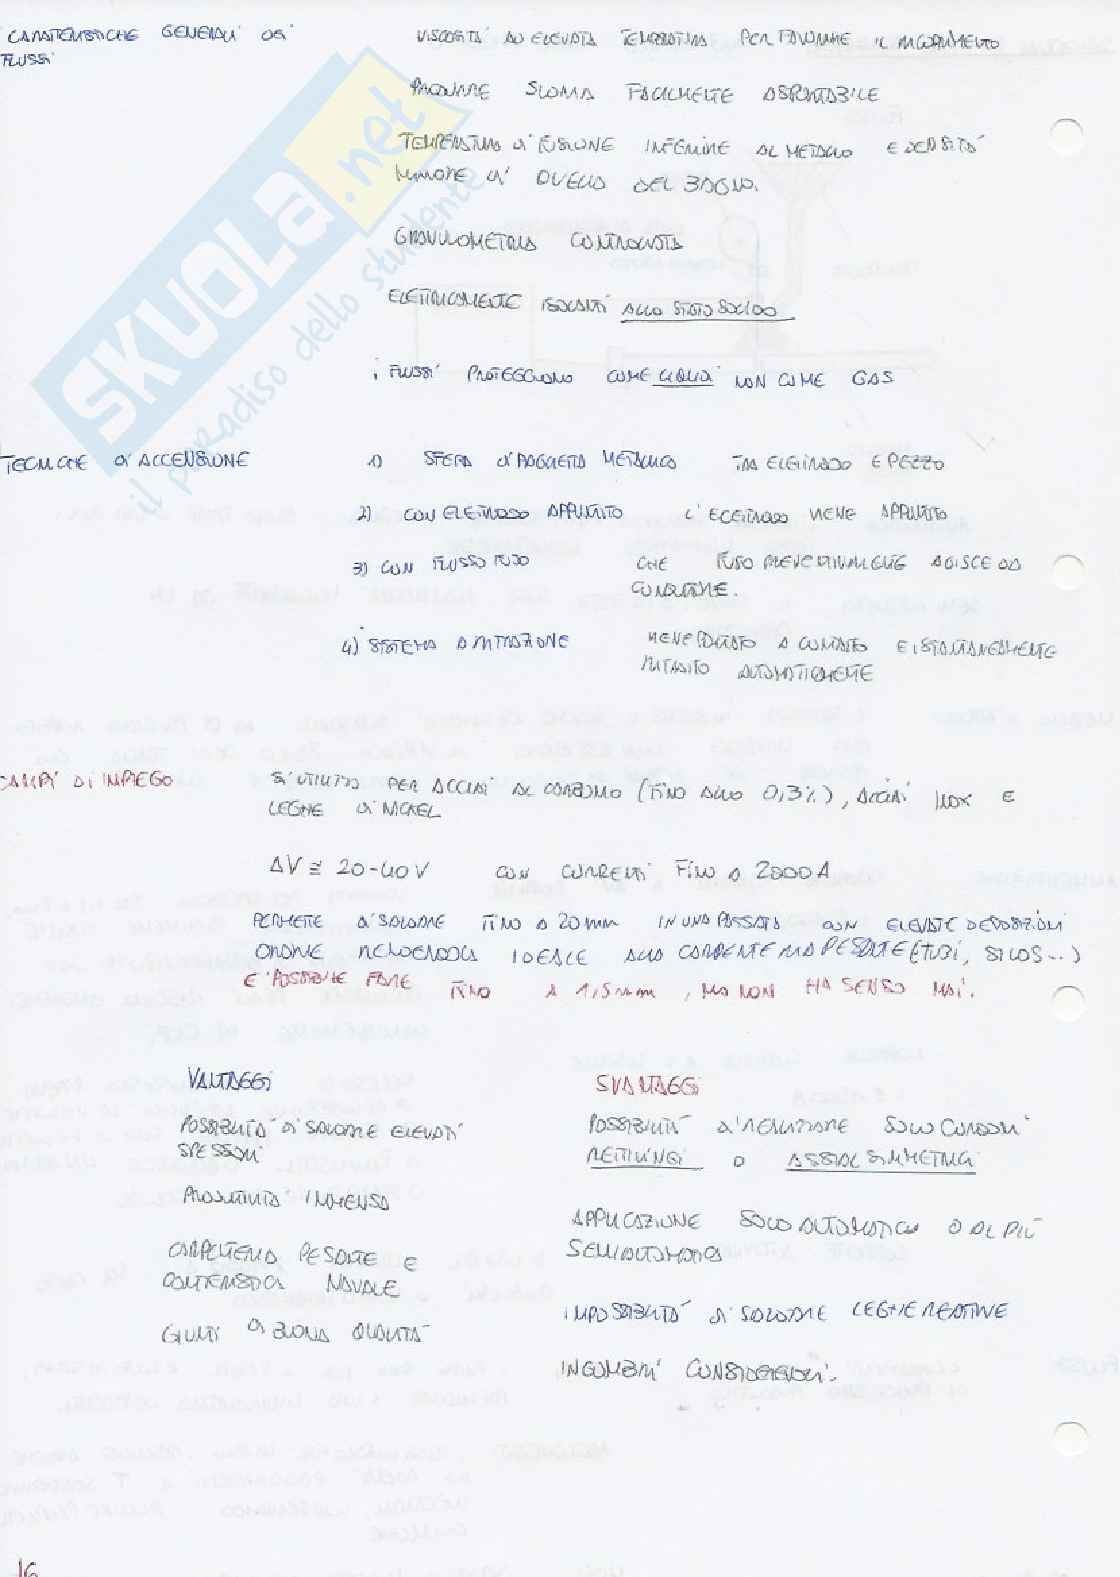 CARATTERISTICHE GENERALI DEI
FLUSSI
VISCOSITÀ AD ELEVATA TEMPERATURA PER FAVORIRE IL RICOPRIMENTO
PRODURRE SCORIA FACILMENTE ASPORTABILE
TEMPERATURA DI FUSIONE INFERIORE AL METALLO E DENSITÀ
MINORE DI QUELLA DEL BAGNO.
GRANULOMETRIA CONTROLLATA
ELETTRICAMENTE ISOLANTI ALLO STATO SOLIDO
i FLUSSI PROTEGGONO COME LIQUIDI NON COME GAS
TECNICHE DI ACCENSIONE
1) SFERA DI PAGLIETTA METALLICA TRA ELETTRODO E PEZZO
2) CON ELETTRODO APPUNTITO L'ELETTRODO VIENE APPUNTITO
3) CON FLUSSO FUSO CHE FUSO PREVENTIVAMENTE AGISCE DA
CONDUTTORE.
4) SISTEMA A RITRAZIONE VIENE PORTATO A CONTATTO E ISTANTANEAMENTE
RITRATTO AUTOMATICAMENTE
CAMPI DI IMPIEGO
SI UTILIZZA PER ACCIAI AL CARBONIO (FINO ALLO 0,3%), ACCIAI INOX E
LEGHE DI NICHEL
ΔV ≅ 20-40V CON CORRENTI FINO A 2000 A
PERMETTE DI SALDARE FINO A 20 mm IN UNA PASSATA CON ELEVATE DEPOSIZIONI
ORARIE RENDENDOLA IDEALE ALLA CARPENTERIA PESANTE (TUBI, SILOS...)
E' POSSIBILE FARE FINO A 1,5 mm, MA NON HA SENSO MAI.
VANTAGGI
POSSIBILITÀ DI SALDARE ELEVATI
SPESSORI
PRODUTTIVITÀ IMMENSA
CARPENTERIA PESANTE E
CANTIERISTICA NAVALE
GIUNTI DI BUONA QUALITÀ
SVANTAGGI
POSSIBILITÀ DI REALIZZARE SOLO CORDONI
RETTILINEI O ASSIALSIMMETRICI
APPLICAZIONE SOLO AUTOMATICA O AL PIÙ
SEMIAUTOMATICA
IMPOSSIBILITÀ DI SALDARE LEGHE REATTIVE
INGOMBRI CONSIDEREVOLI.
16
SKUOLA.net
il paradiso dello studente